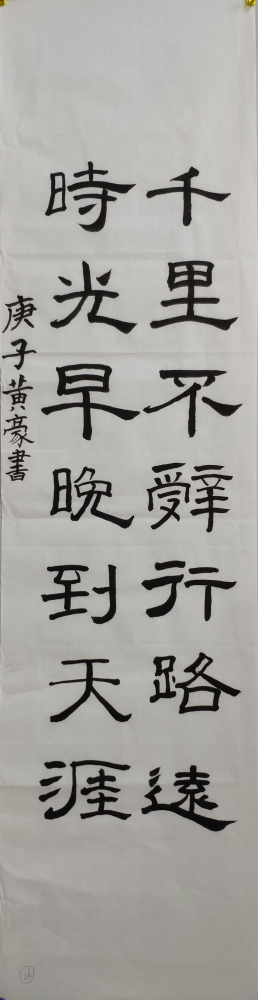 千里不辭行路遠
時光早晚到天涯
庚子黃豪書
26